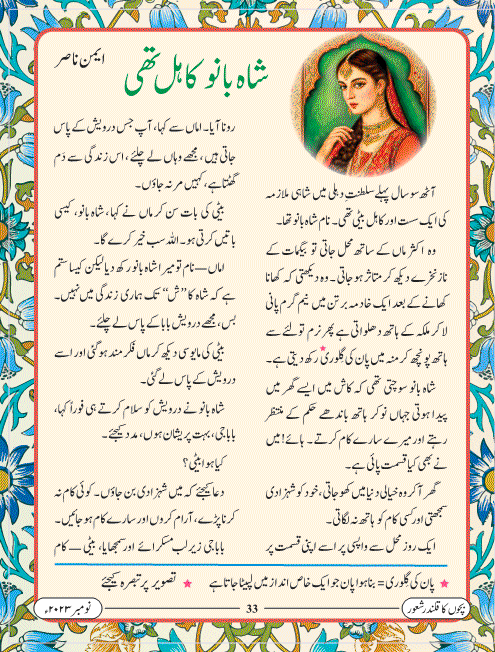 شاہ بانو کاہل تھی
ایمن ناصر
آٹھ سو سال پہلے سلطنتِ دہلی میں شاہی ملازمہ
کی ایک سست اور کاہل بیٹی تھی۔ نام شاہ بانو تھا۔
وہ اکثر ماں کے ساتھ محل جاتی تو بیگمات کے
ناز نخرے دیکھ کر متاثر ہو جاتی۔ وہ دیکھتی کہ کھانا
کھانے کے بعد ایک خادمہ برتن میں نیم گرم پانی
لا کر ملکہ کے ہاتھ دھلواتی ہے پھر نرم تولئے سے
ہاتھ پونچھ کر منہ میں پان کی گلوری * رکھ دیتی ہے۔
شاہ بانو سوچتی تھی کہ کاش میں ایسے گھر میں
پیدا ہوتی جہاں نوکر ہاتھ باندھے حکم کے منتظر
رہتے اور میرے سارے کام کرتے۔ ہائے! میں
نے بھی کیا قسمت پائی ہے۔
گھر آ کر وہ خیالی دنیا میں کھو جاتی، خود کو شہزادی
سمجھتی اور کسی کام کو ہاتھ نہ لگاتی۔
ایک روز محل سے واپسی پر اسے اپنی قسمت پر
رونا آیا۔ اماں سے کہا، آپ جس درویش کے پاس
جاتی ہیں، مجھے وہاں لے چلئے، اس زندگی سے دَم
گھٹتا ہے، کہیں مر نہ جاؤں۔
بیٹی کی بات سن کر ماں نے کہا، شاہ بانو، کیسی
باتیں کرتی ہو۔ اللہ سب خیر کرے گا۔
اماں — نام تو میرا شاہ بانو رکھ دیا لیکن کیا ستم
ہے کہ شاہ کا ”ش“ تک ہماری زندگی میں نہیں۔
بس، مجھے درویش بابا کے پاس لے چلئے۔
بیٹی کی مایوسی دیکھ کر ماں فکر مند ہو گئی اور اسے
درویش کے پاس لے گئی۔
شاہ بانو نے درویش کو سلام کرتے ہی فوراً کہا،
بابا جی، بہت پریشان ہوں، مدد کیجئے۔
کیا ہوا بیٹی؟
دعا کیجئے کہ میں شہزادی بن جاؤں۔ کوئی کام نہ
کرنا پڑے، آرام کروں اور سارے کام ہو جائیں۔
بابا جی زیرِ لب مسکرائے اور سمجھایا، بیٹی — کام
★ پان کی گلوری = بنا ہوا پان جو ایک خاص انداز میں لپیٹا جاتا ہے ★ تصویر پر تبصرہ کیجئے
بچوں کا قلندر شعور
33
نومبر ۲۰۲۳ء